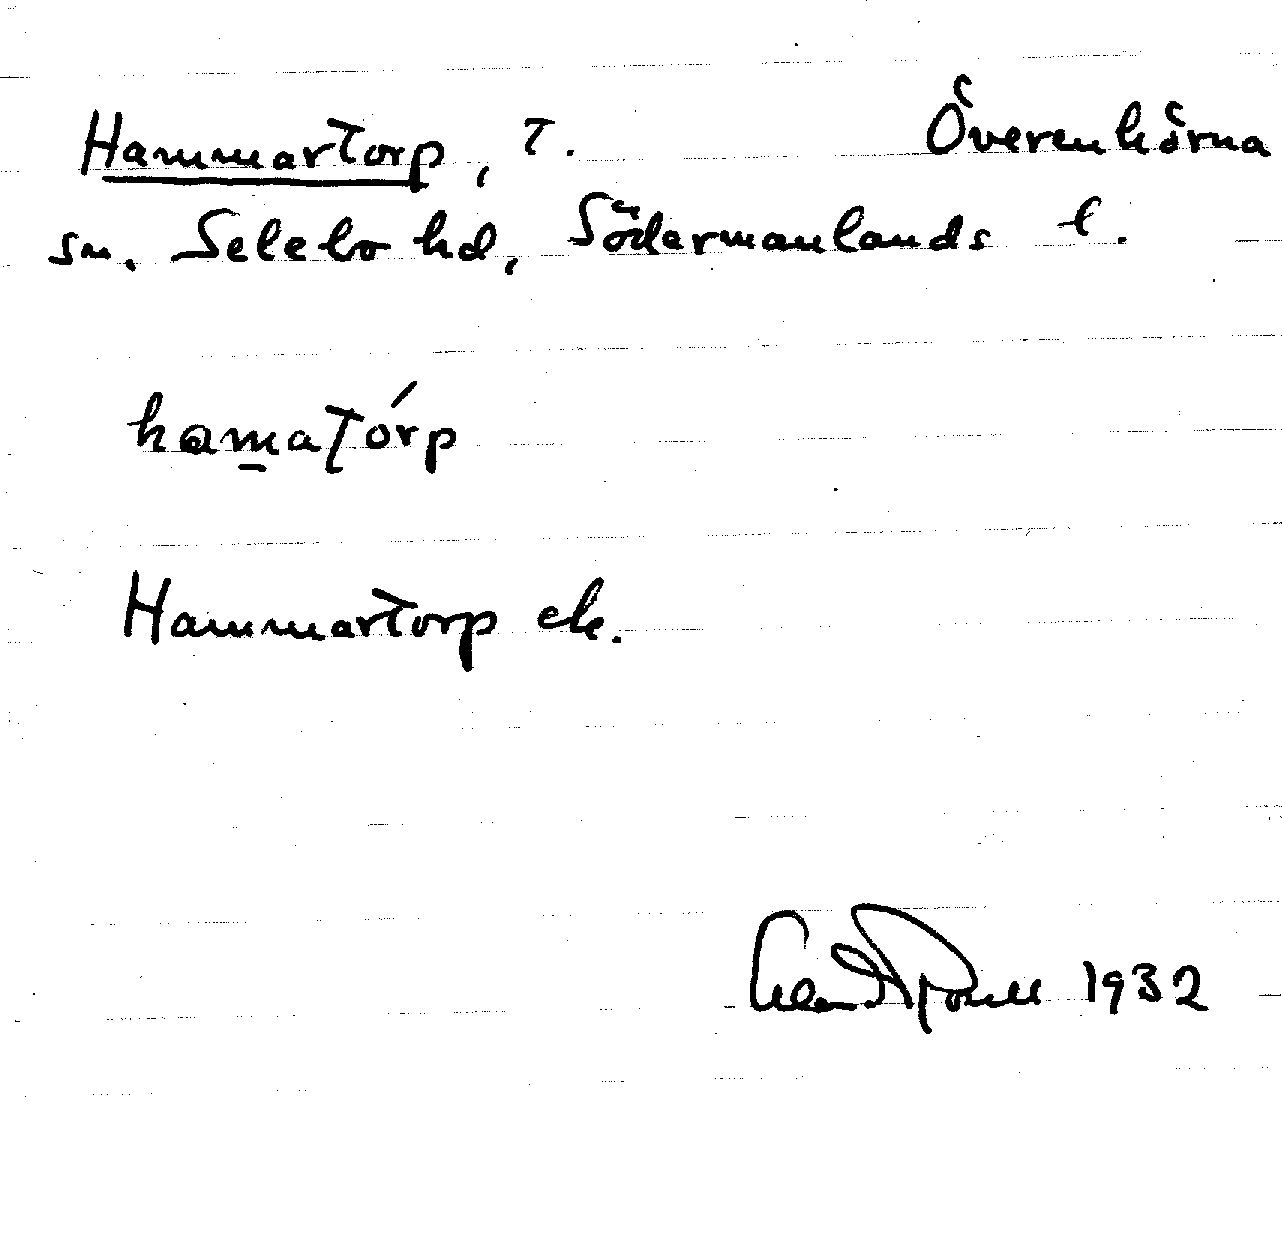 Hammartorp, T. Överenhörna
sn. Selebo hd, Södermanlands l.
hamatórp
Hammartorp ek.
1932